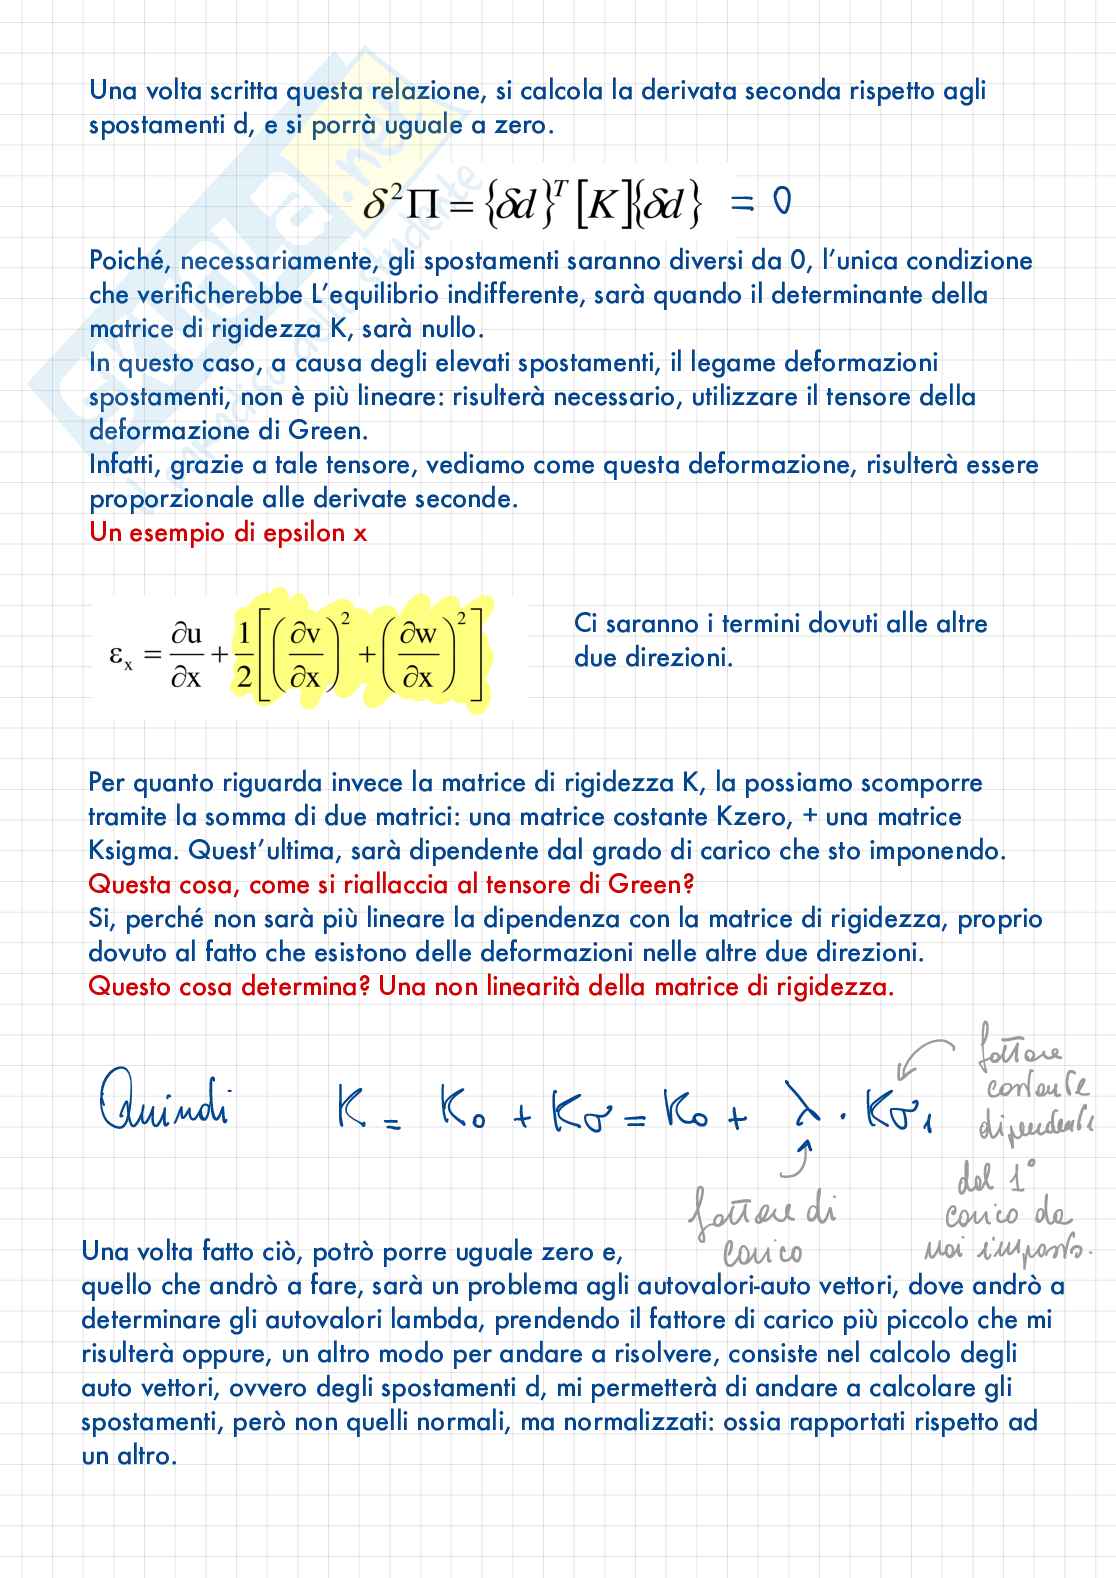 Una volta scritta questa relazione, si calcola la derivata seconda rispetto agli
spostamenti d, e si porrà uguale a zero.
δ²Π = {δd}ᵀ [K]{δd} = 0
Poiché, necessariamente, gli spostamenti saranno diversi da 0, l’unica condizione
che verificherebbe L’equilibrio indifferente, sarà quando il determinante della
matrice di rigidezza K, sarà nullo.
In questo caso, a causa degli elevati spostamenti, il legame deformazioni
spostamenti, non è più lineare: risulterà necessario, utilizzare il tensore della
deformazione di Green.
Infatti, grazie a tale tensore, vediamo come questa deformazione, risulterà essere
proporzionale alle derivate seconde.
Un esempio di epsilon x
εₓ = ∂u/∂x + 1/2 [(∂v/∂x)² + (∂w/∂x)²]
Ci saranno i termini dovuti alle altre
due direzioni.
Per quanto riguarda invece la matrice di rigidezza K, la possiamo scomporre
tramite la somma di due matrici: una matrice costante Kzero, + una matrice
Ksigma. Quest’ultima, sarà dipendente dal grado di carico che sto imponendo.
Questa cosa, come si riallaccia al tensore di Green?
Si, perché non sarà più lineare la dipendenza con la matrice di rigidezza, proprio
dovuto al fatto che esistono delle deformazioni nelle altre due direzioni.
Questo cosa determina? Una non linearità della matrice di rigidezza.
Quindi K = K₀ + Kσ = K₀ + λ · Kσ₁
fattore
costante
dipendente
dal 1°
carico da
noi imposto.
fattore di
carico
Una volta fatto ciò, potrò porre uguale zero e,
quello che andrò a fare, sarà un problema agli autovalori-auto vettori, dove andrò a
determinare gli autovalori lambda, prendendo il fattore di carico più piccolo che mi
risulterà oppure, un altro modo per andare a risolvere, consiste nel calcolo degli
auto vettori, ovvero degli spostamenti d, mi permetterà di andare a calcolare gli
spostamenti, però non quelli normali, ma normalizzati: ossia rapportati rispetto ad
un altro.